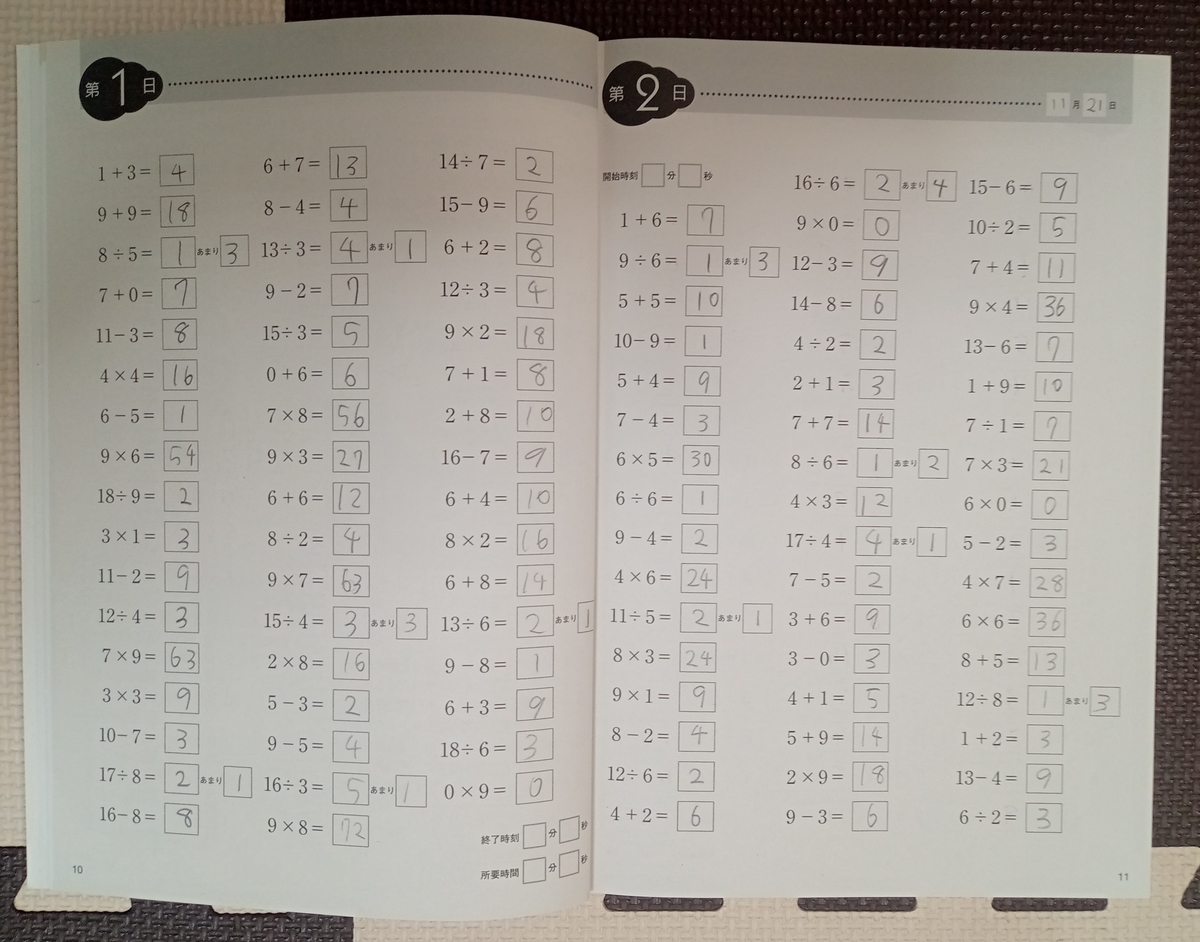 第1日
1+3=4
9+9=18
8÷5=1あまり3
7+0=7
11-3=8
4×4=16
6-5=1
9×6=54
18÷9=2
3×1=3
11-2=9
12÷4=3
7×9=63
3×3=9
10-7=3
17÷8=2あまり1
16-8=8
6+7=13
8-4=4
13÷3=4あまり1
9-2=7
15÷3=5
0+6=6
7×8=56
9×3=27
6+6=12
8÷2=4
9×7=63
15÷4=3あまり3
2×8=16
5-3=2
9-5=4
16÷3=5あまり1
9×8=72
14÷7=2
15-9=6
6+2=8
12÷3=4
9×2=18
7+1=8
2+8=10
16-7=9
6+4=10
8×2=16
6+8=14
13÷6=2あまり1
9-8=1
6+3=9
18÷6=3
0×9=0
終了時刻 分 秒
所要時間 分 秒
10
第2日
11月21日
開始時刻 分 秒
1+6=7
9÷6=1あまり3
5+5=10
10-9=1
5+4=9
7-4=3
6×5=30
6÷6=1
9-4=2
4×6=24
11÷5=2あまり1
8×3=24
9×1=9
8-2=4
12÷6=2
4+2=6
16÷6=2あまり4
9×0=0
12-3=9
14-8=6
4÷2=2
2+1=3
7+7=14
8÷6=1あまり2
4×3=12
17÷4=4あまり1
7-5=2
3+6=9
3-0=3
4+1=5
5+9=14
2×9=18
9-3=6
15-6=9
10÷2=5
7+4=11
9×4=36
13-6=7
1+9=10
7÷1=7
7×3=21
6×0=0
5-2=3
4×7=28
6×6=36
8+5=13
12÷8=1あまり3
1+2=3
13-4=9
6÷2=3
11